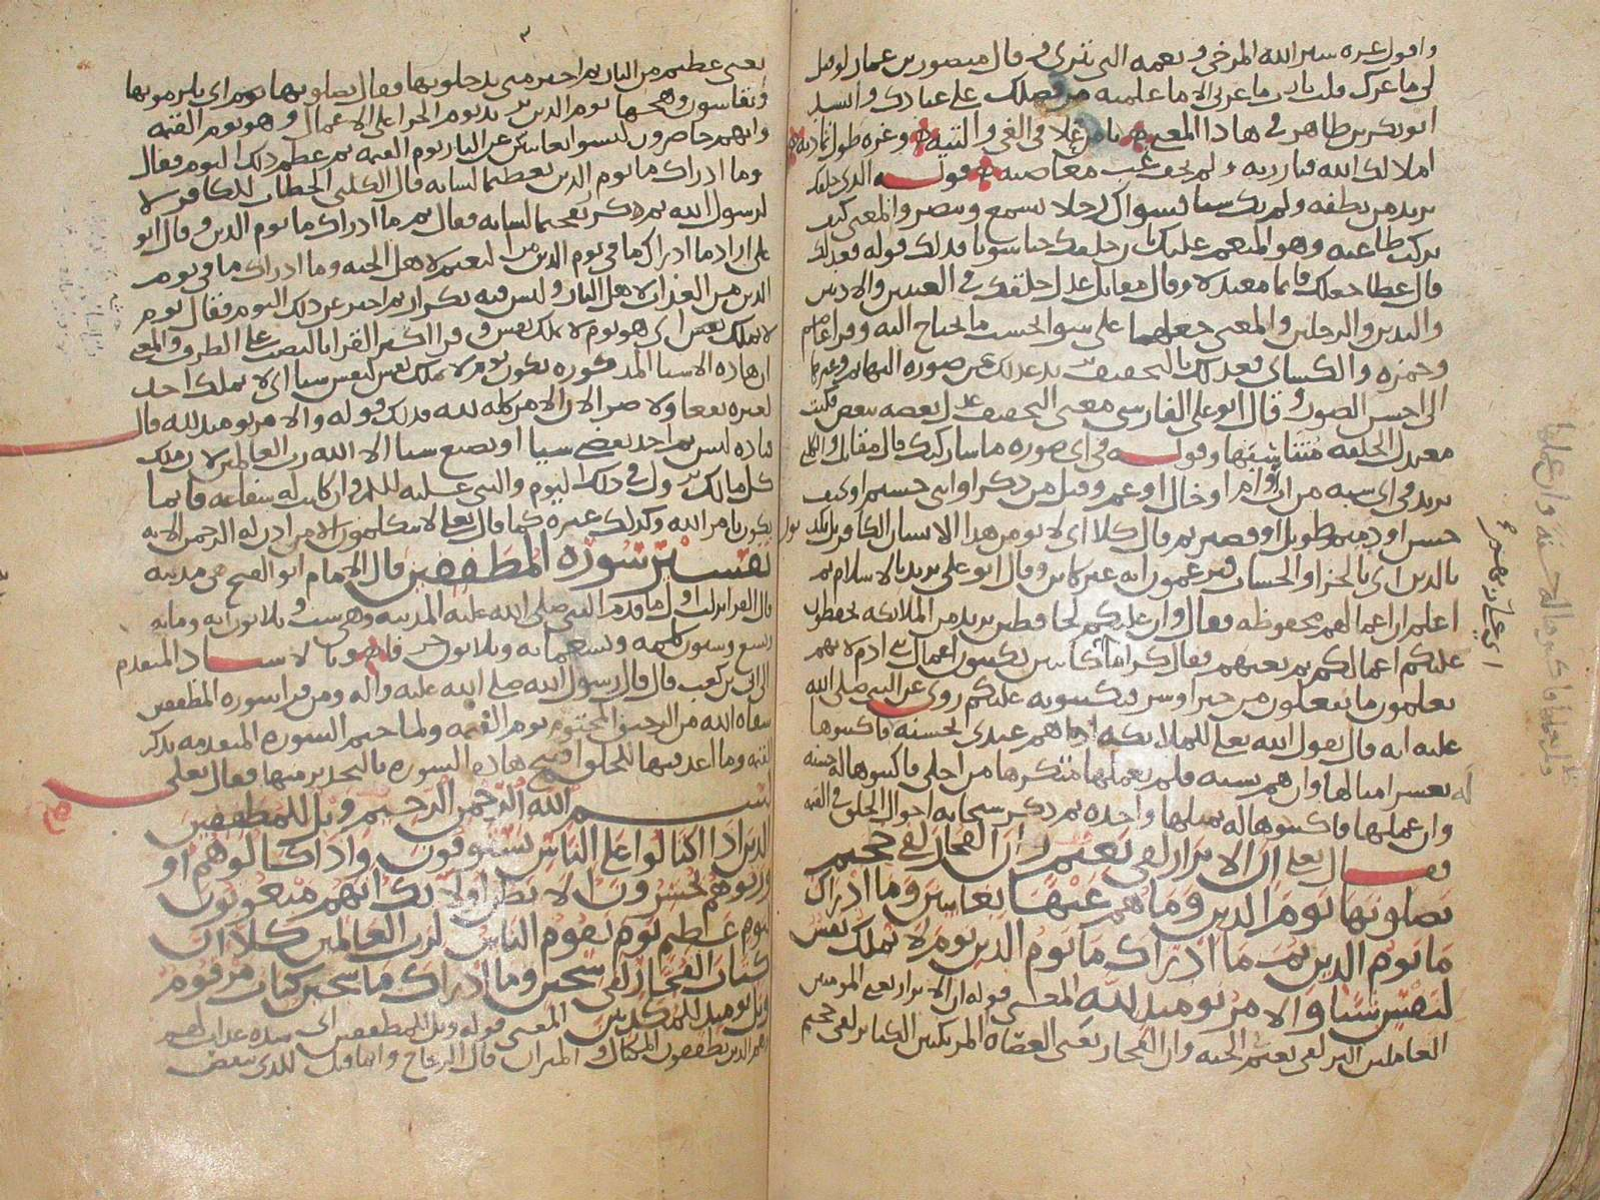 واقول غره ستر الله المرخى ونعمه التى تترى وقال منصور بن عمار لو قيل
لى ما غرك قلت يا رب ما غرنى الا ما علمته من فضلك على عبادك وانشد
ابو بكر بن طاهر فى هاذا المعنى يا من غلا فى الغى والتيه وغره طول تماديه
املا لك الله فبارزته ولم تخف غب معاصيه قوله الذى خلقك
يريد من نطفه ولم تك شيا فسواك رجلا تسمع وتبصر والمعنى كيف
تركت طاعته وهو المنعم عليك بان خلقك حيا سويا فذلك قوله فعدلك
قال عطا جعلك قايما معتدلا وقال مقاتل عدل خلقك فى العينين والاذنين
واليدين والرجلين والمعنى جعلهما على سوا الحسب ما يحتاج اليه وقرا عاصم
وحمزه والكساى فعدلك بالتخفيف عدلك عن صوره البهايم وغيرها
الى احسن الصور وقال ابو على الفارسى معنى التخفيف عدل بعضه ببعض فكنت
معتدل الخلقه متناسبها وقوله فى اى صوره ما شا ركبك قال مقاتل والكلبى
يريد فى اى شبه من اب او ام او خال او عم وقيل من ذكر او انثى جسيم او نحيف
حسن او دميم طويل او قصير ثم قال كلا اى لا يومن هذا الانسان الكافر بل تكذبون
بالدين اى بالجزا والحساب فيزعمون انه غير كاين وقال ابو على يريد بالاسلام ثم
اعلم ان اعمالهم محفوظه فقال وان عليكم لحافظين يريد من الملائكه يحفظون
عليكم اعمالكم ثم نعتهم فقال كراما كاتبين يكتبون اعمال بنى ادم لانهم
يعلمون ما تفعلون من خير او شر فيكتبونه عليكم روى عن النبى صلى الله
عليه انه قال يقول الله تعلى للملائكه اذا هم عبدى بحسنه فاكتبوها
له بعشر امثالها وان هم بسيه فلم يعملها من اجلى فاكتبوها له حسنه
وان عملها فاكتبوها له بمثلها واحده ثم ذكر سبحانه احوال الخلق فى القيمه
فقال تعلى ان الابرار لفى نعيم وان الفجار لفى جحيم
يصلونها يوم الدين وما هم عنها بغايبين وما ادراك
ما يوم الدين ثم ما ادراك ما يوم الدين يوم لا تملك نفس
لنفس شيا والامر يوميذ لله المعنى قوله ان الابرار يعنى المومنين
العاملين البر لفى نعيم فى الجنه وان الفجار يعنى العصاه المرتكبين الكباير لفى جحيم
يعنى عظيم من النار ثم اخبر متى يدخلونها فقال يصلونها يوم اى يلزمونها
ويقاسون وهجها يوم الدين يريد يوم الجزا على الاعمال وهو يوم القيمه
وانهم حاضرون ليسوا بغايبين عن النار يوم القيمه ثم عظم ذلك اليوم فقال
وما ادراك ما يوم الدين تعظيما لشانه قال الكلبى الخطاب للكافر لا
لرسول الله ثم كرر تفخيما لشانه فقال ثم ما ادراك ما يوم الدين وقال ابو
على اراد ما ادراك ما فى يوم الدين من النعيم لاهل الجنه وما ادراك ما فى يوم
الدين من العذاب لاهل النار وليس فيه تكرار ثم اخبر عن ذلك اليوم فقال يوم
لا تملك نفس اى هو يوم لا تملك نفس وقرا اكثر القرا بالنصب على الظرف والمعنى
ان هاذه الاشيا المذكوره تكون يوم لا تملك نفس لنفس شيا اى لا يملك احد
لغيره نفعا ولا ضرا لان الامر كله لله فذلك قوله والامر يوميذ لله قال
قتاده ليس ثم احد يقضى شيا او يصنع شيا الا الله رب العالمين لان ملك
كل مالك يزول فى ذلك اليوم والنبى عليه السلم وان كانت له شفاعه فانما
تكون بامر الله وكذلك غيره كما قال تعلى لا يتكلمون الا من اذن له الرحمن الايه
تفسير سوره المطففين قال الامام ابو الفتح هى مدنيه
قال الفرا نزلت اول ما قدم النبى صلى الله عليه المدينه وهى ست وثلاثون ايه ومايه
وتسع وستون كلمه وسبعمايه وثلاثون حرفا وبالاسناد المتقدم
الى ابى بن كعب قال قال رسول الله صلى الله عليه واله ومن قرا سوره المطففين
سقاه الله من الرحيق المختوم يوم القيمه ولما ختم السوره المتقدمه بذكر
القيمه وما اعد فيها للخلق افتتح هاذه السوره بالتحذير منها فقال تعلى
بسم الله الرحمن الرحيم ويل للمطففين
الذين اذا اكتالوا على الناس يستوفون واذا كالوهم او
وزنوهم يخسرون الا يظن اوليك انهم مبعوثون
ليوم عظيم يوم يقوم الناس لرب العالمين كلا ان
كتاب الفجار لفى سجين وما ادراك ما سجين كتاب مرقوم
ويل يوميذ للمكذبين المعنى قوله ويل للمطففين اى شده عذاب لهم
وهم الذين يطففون المكيال والميزان قال الزجاج وانما قيل للذى ينقص